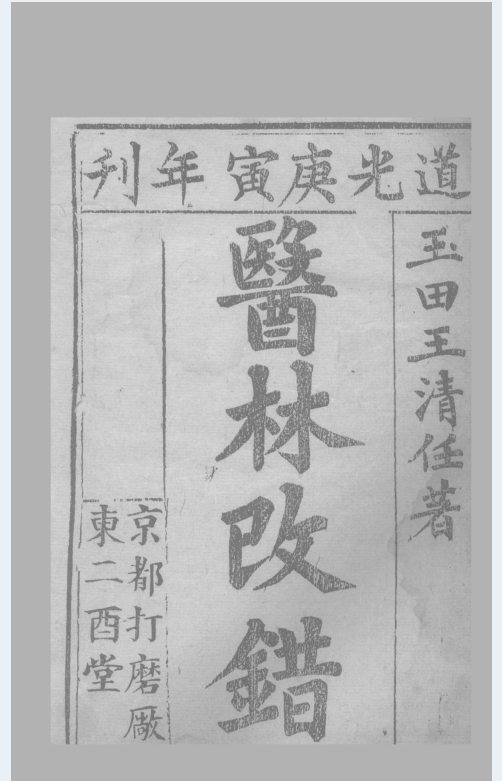 道光庚寅年刊
玉田王清任著
醫林改錯
京都打磨厰
東二酉堂